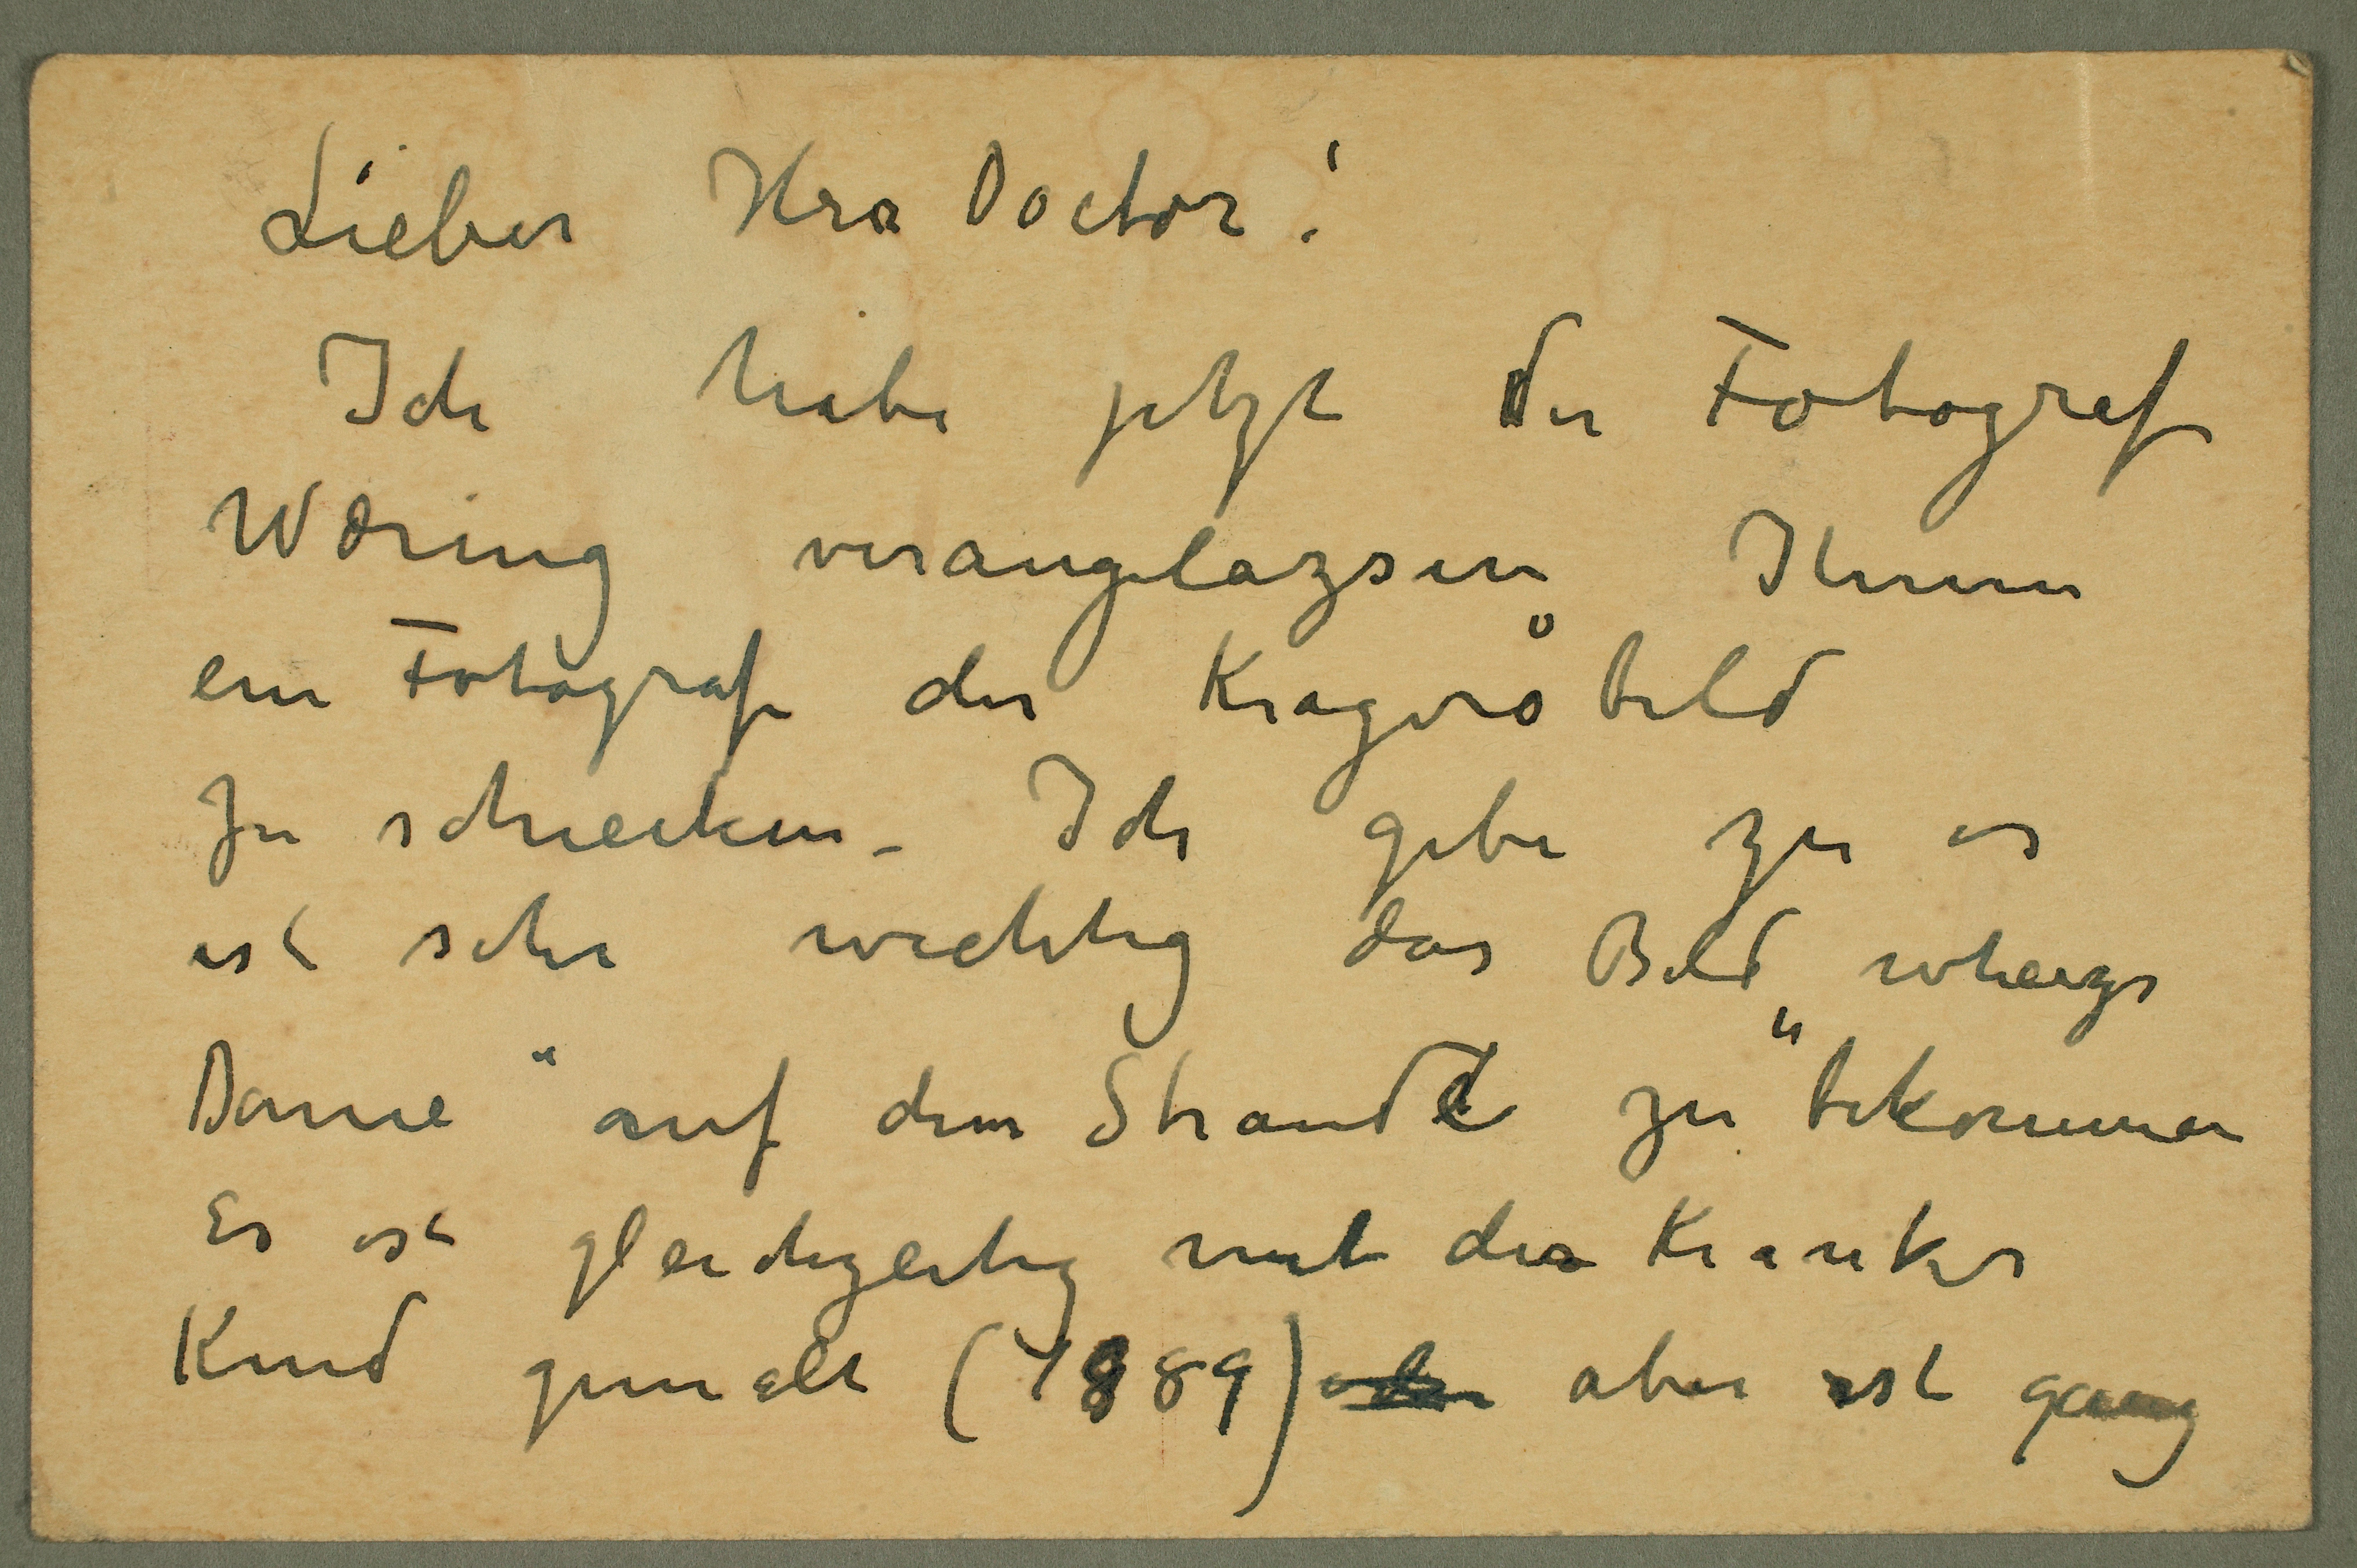 Lieber Herr Doctor!
Ich habe jetzt der Fotograf
Wäring veranglazsen Ihnen
ein Fotografi der Kragerö bild
zu schiecken – Ich gebe zu es
ist sehr wichtig das Bild
Dame" auf dem Strande zu" bekommen
Es ist gleichzeitig mit der Kranker
Kind gemalt (1889) aber ist ganz